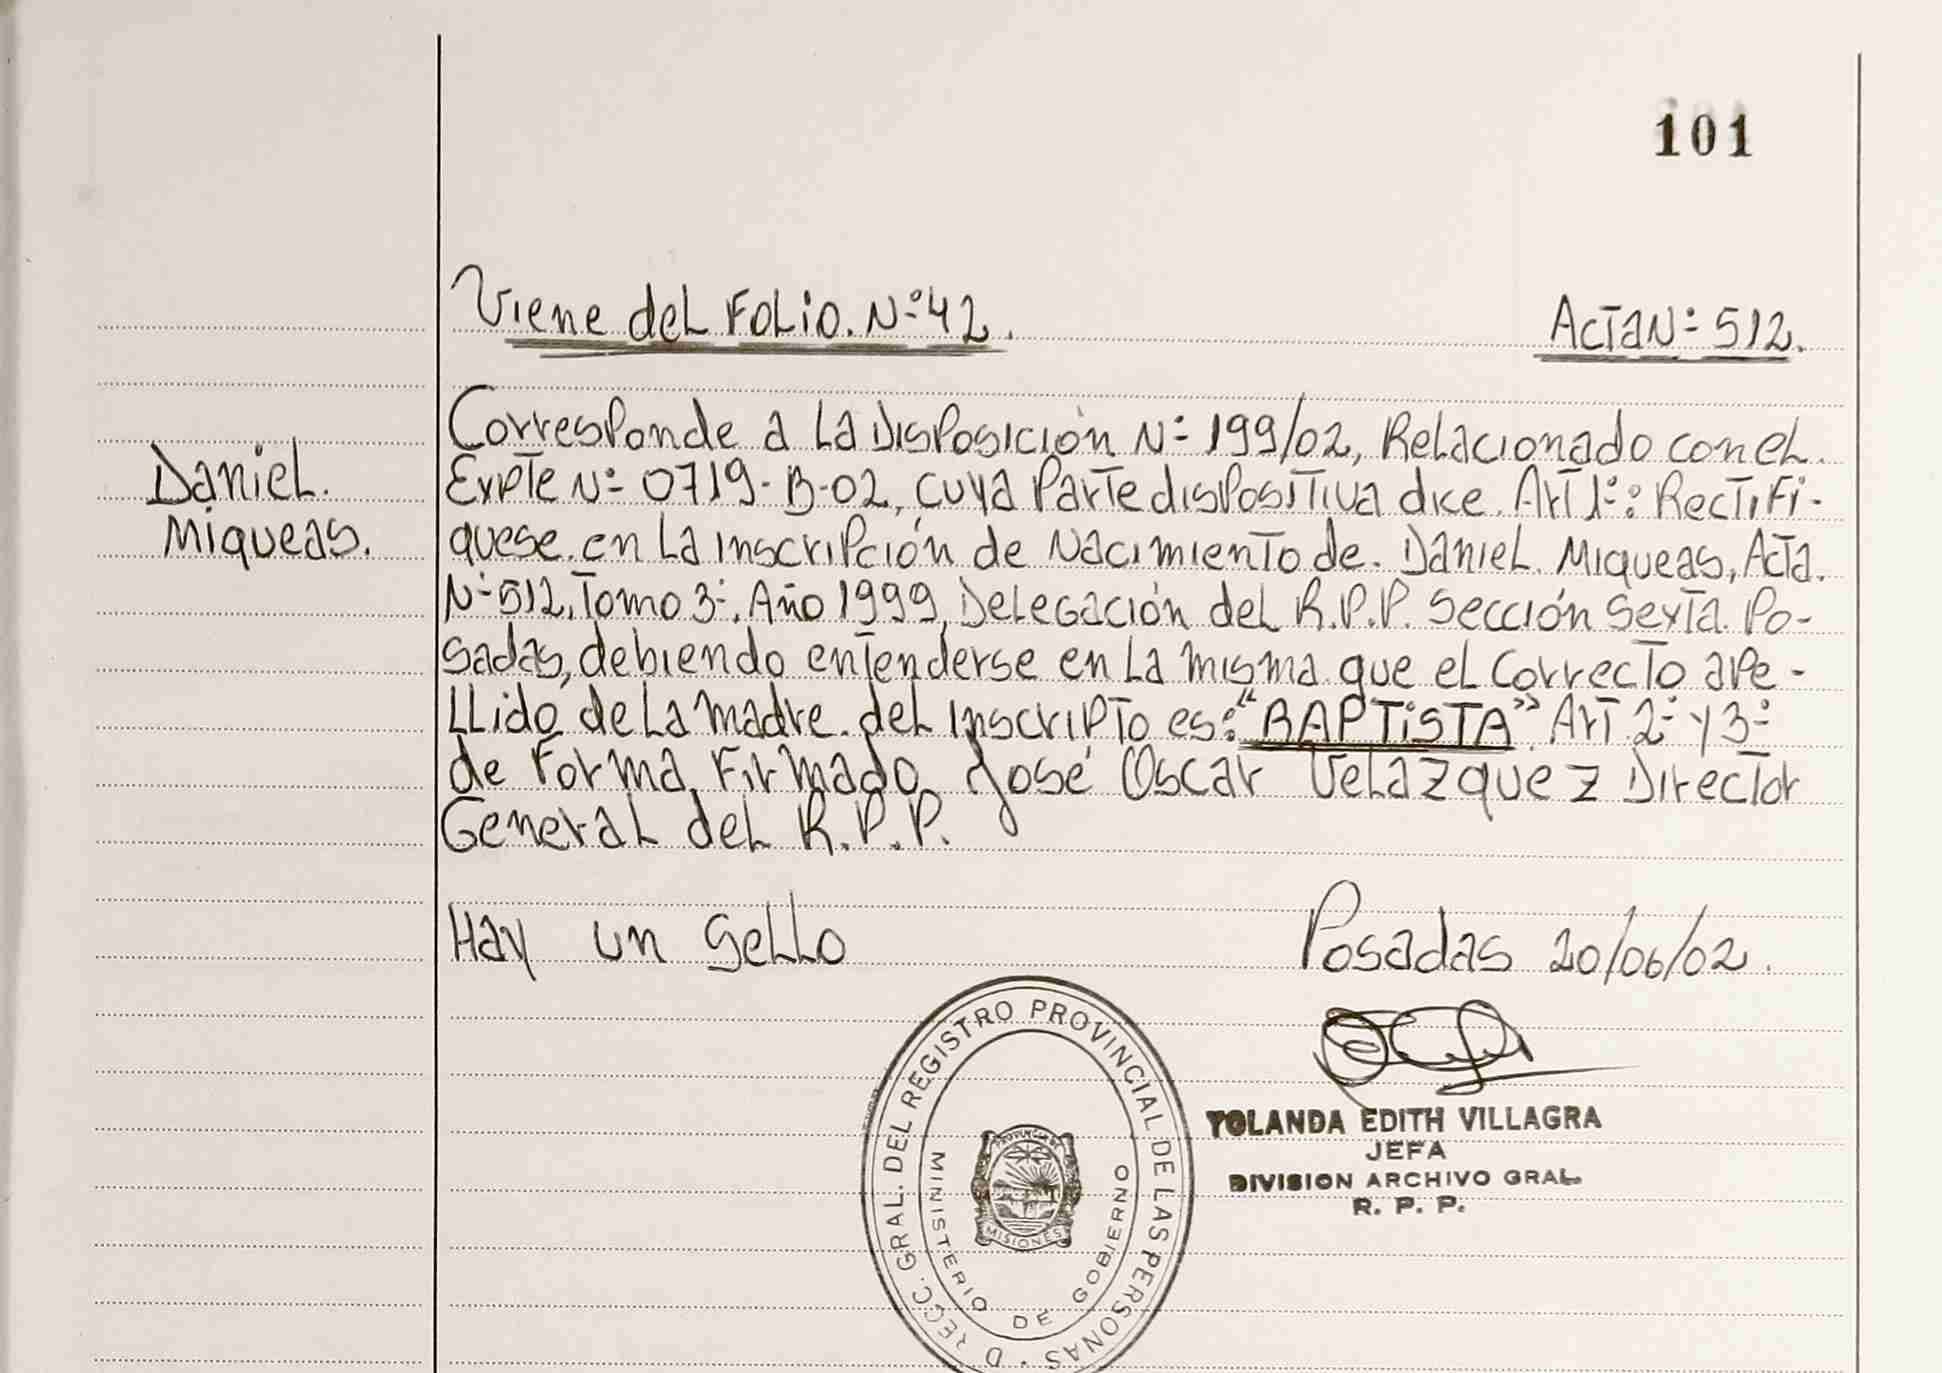 101
Viene del Folio. Nº 42. Acta Nº 512.
Daniel.
Miqueas.
Corresponde a la Disposición Nº 199/02, Relacionado con el.
Expte Nº 0719-B-02, cuya Parte dispositiva dice. Art 1º: Rectifi-
quese. en la inscripción de Nacimiento de. Daniel. Miqueas, Acta.
Nº 512, Tomo 3º, Año 1999, Delegación del R.P.P. Sección Sexta. Po-
sadas, debiendo entenderse en la misma que el correcto ape-
llido de la madre. del inscripto es: "BAPTISTA". Art 2º y 3º
de Forma, Firmado José Oscar Velazquez Director
General del R.P.P.
Hay un sello Posadas 20/06/02.
YOLANDA EDITH VILLAGRA
JEFA
DIVISION ARCHIVO GRAL.
R. P. P.
DIRECC. GRAL. DEL REGISTRO PROVINCIAL DE LAS PERSONAS
MINISTERIO DE GOBIERNO
PROVINCIA DE
MISIONES